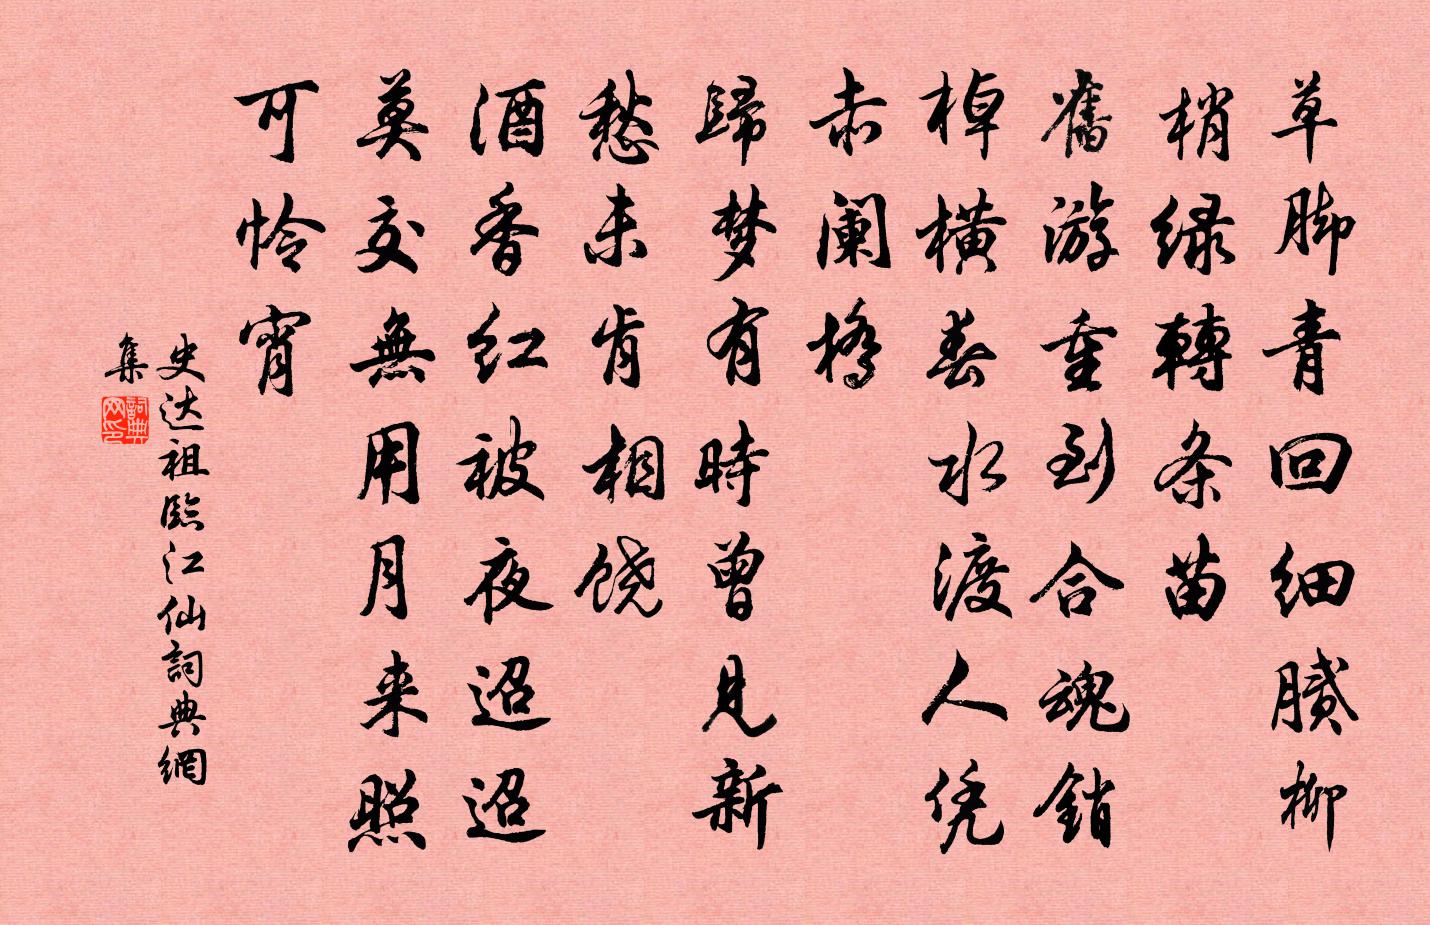 草脚青回细腻柳
梢绿轉条苗
舊游重到合魂銷
棹横春水渡人凭
赤阑橋
歸梦有時曾见新
愁未肯相饶
酒香红被夜迢迢
莫交無用月来照
可怜宵
史达祖臨江仙詞典網
集
詞典网印